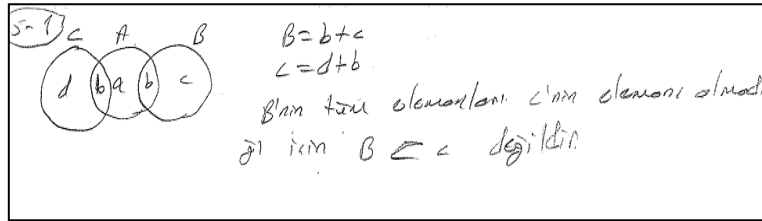 S-1
C A B
d b a b c
B=b+c
C=d+b
B'nin tüm elemanları C'nin elemanı olmadı
ğı için B ⊂ C değildir.